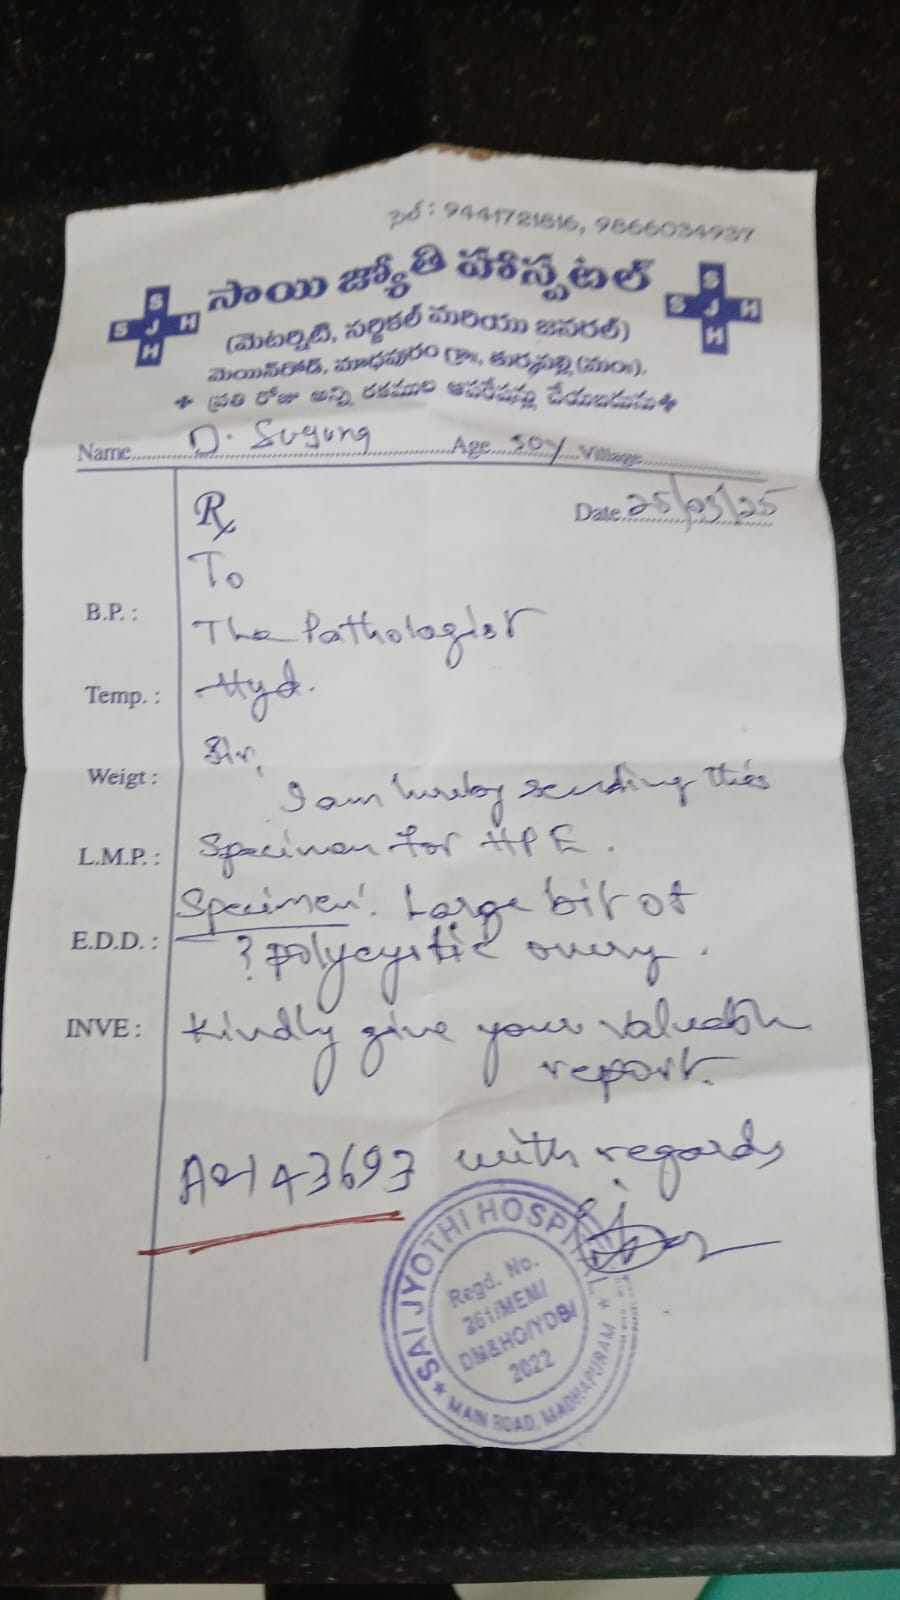 సెల్ : 9441721816, 9866034937
సాయి జ్యోతి హాస్పటల్
S
S J H
H
S
S J H
H
(మెటర్నిటి, సర్జికల్ మరియు జనరల్)
మెయిన్‌రోడ్, మాధాపురం గ్రా॥, తుర్కపల్లి (మం).
* ప్రతి రోజు అన్ని రకముల ఆపరేషన్లు చేయబడును *
Name D. Suguna Age 50y Village
Rx Date 25/03/25
To
B.P. :
The Pathologist
Temp. : Hyd.
Sir,
Weigt : I am hereby sending this
L.M.P. : Specimen for HPE.
Specimen: Large bit of
E.D.D. : ? polycystic ovary.
INVE : Kindly give your valuable
report.
43693 with regards
* SAI JYOTHI HOSPITAL *
Regd. No.
261/MEM/
DM&HO/YDB/
2022
MAIN ROAD, MADHAPURAM